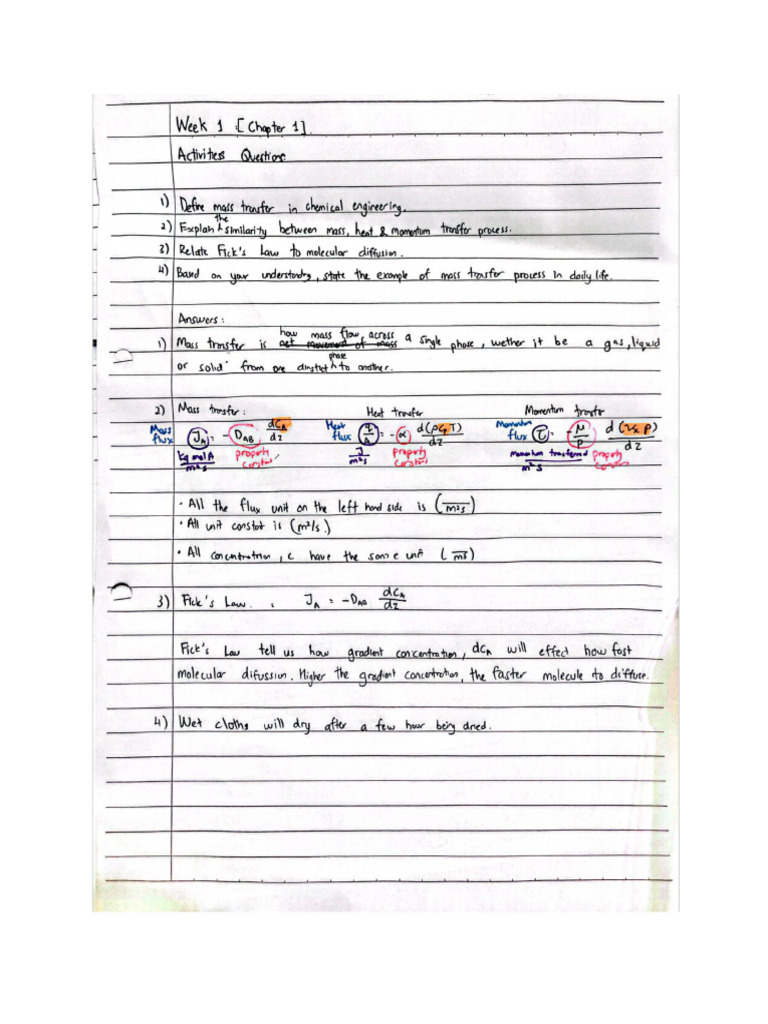 Week 1 [Chapter 1].
Activities Questions
1) Define mass transfer in chemical engineering.
2) Explain the similarity between mass, heat & momentum transfer process.
3) Relate Fick's Law to molecular diffusion.
4) Based on your understanding, state the example of mass transfer process in daily life.
Answers:
1) Mass transfer is net movement of mass how mass flow across a single phase, wether it be a gas, liquid
or solid from one dinstat phase to another.
2) Mass transfer: Heat transfer Momentum transfer
Mass flux J_A = -D_AB dC_A/dz Heat flux q/A = -α d(ρCpT)/dz Momentum flux τ = -μ/ρ d(v_x ρ)/dz
kg mol A/m²s property constan. J/m²s property constan. momentum transferred/m²s property constan
• All the flux unit on the left hand side is (/m²s)
• All unit constat is (m²/s.)
• All concentration, c have the same unit (/m³)
3) Fick's Law. : J_A = -D_AB dC_A/dz
Fick's Law tell us how gradient concentration, dC_A will effect how fast
molecular difussion. Higher the gradient concentration, the faster molecule to diffuse.
4) Wet cloths will dry after a few hour being dried.